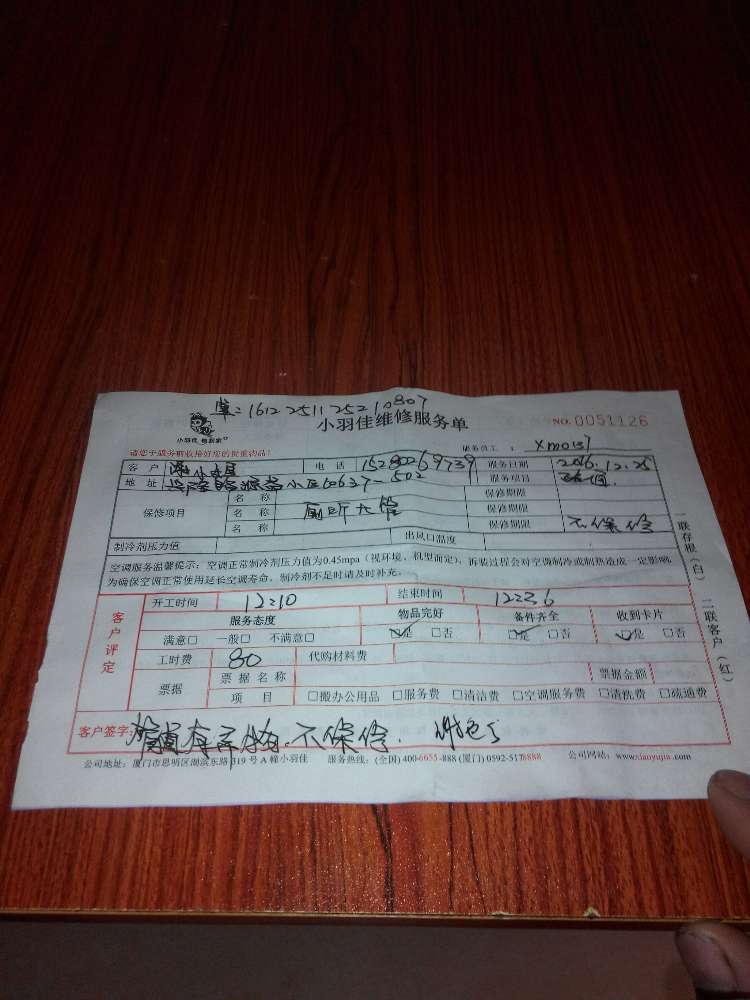 单：1612251125210807
小羽佳维修服务单 NO. 0051126
小羽佳
请您于服务前收拾好您的贵重物品! 服务员工： xm0137
客 户 电 话 15280269739 服务日期 2016.12.25
地 址 小区 637-502 服务项目
保修项目 名 称 保修期限
名 称 厕所 管 保修期限
名 称 保修期限 不保修
制冷剂压力值 出风口温度
空调服务温馨提示：空调正常制冷剂压力值为0.45mpa（视环境、机型而定），拆装过程会对空调制冷或制热造成一定影响，
为确保空调正常使用延长空调寿命，制冷剂不足时请及时补充。
一联存根（白） 二联客户（红）
客户评定
开工时间 12:10 结束时间 12:36
服务态度 物品完好 备件齐全 收到卡片
满意□ 一般□ 不满意□ 是 □否 是 □否 是 □否
工时费 80 代购材料费
票据 票 据 名 称 票据金额
项 目 □搬办公用品 □服务费 □清洁费 □空调服务费 □清洗费 □疏通费
客户签字： 不保修.
公司地址：厦门市思明区湖滨东路 319 号 A 幢小羽佳 服务热线：(全国) 400-6655-888 (厦门) 0592-5178888 公司网站：www.xiaoyujia.com